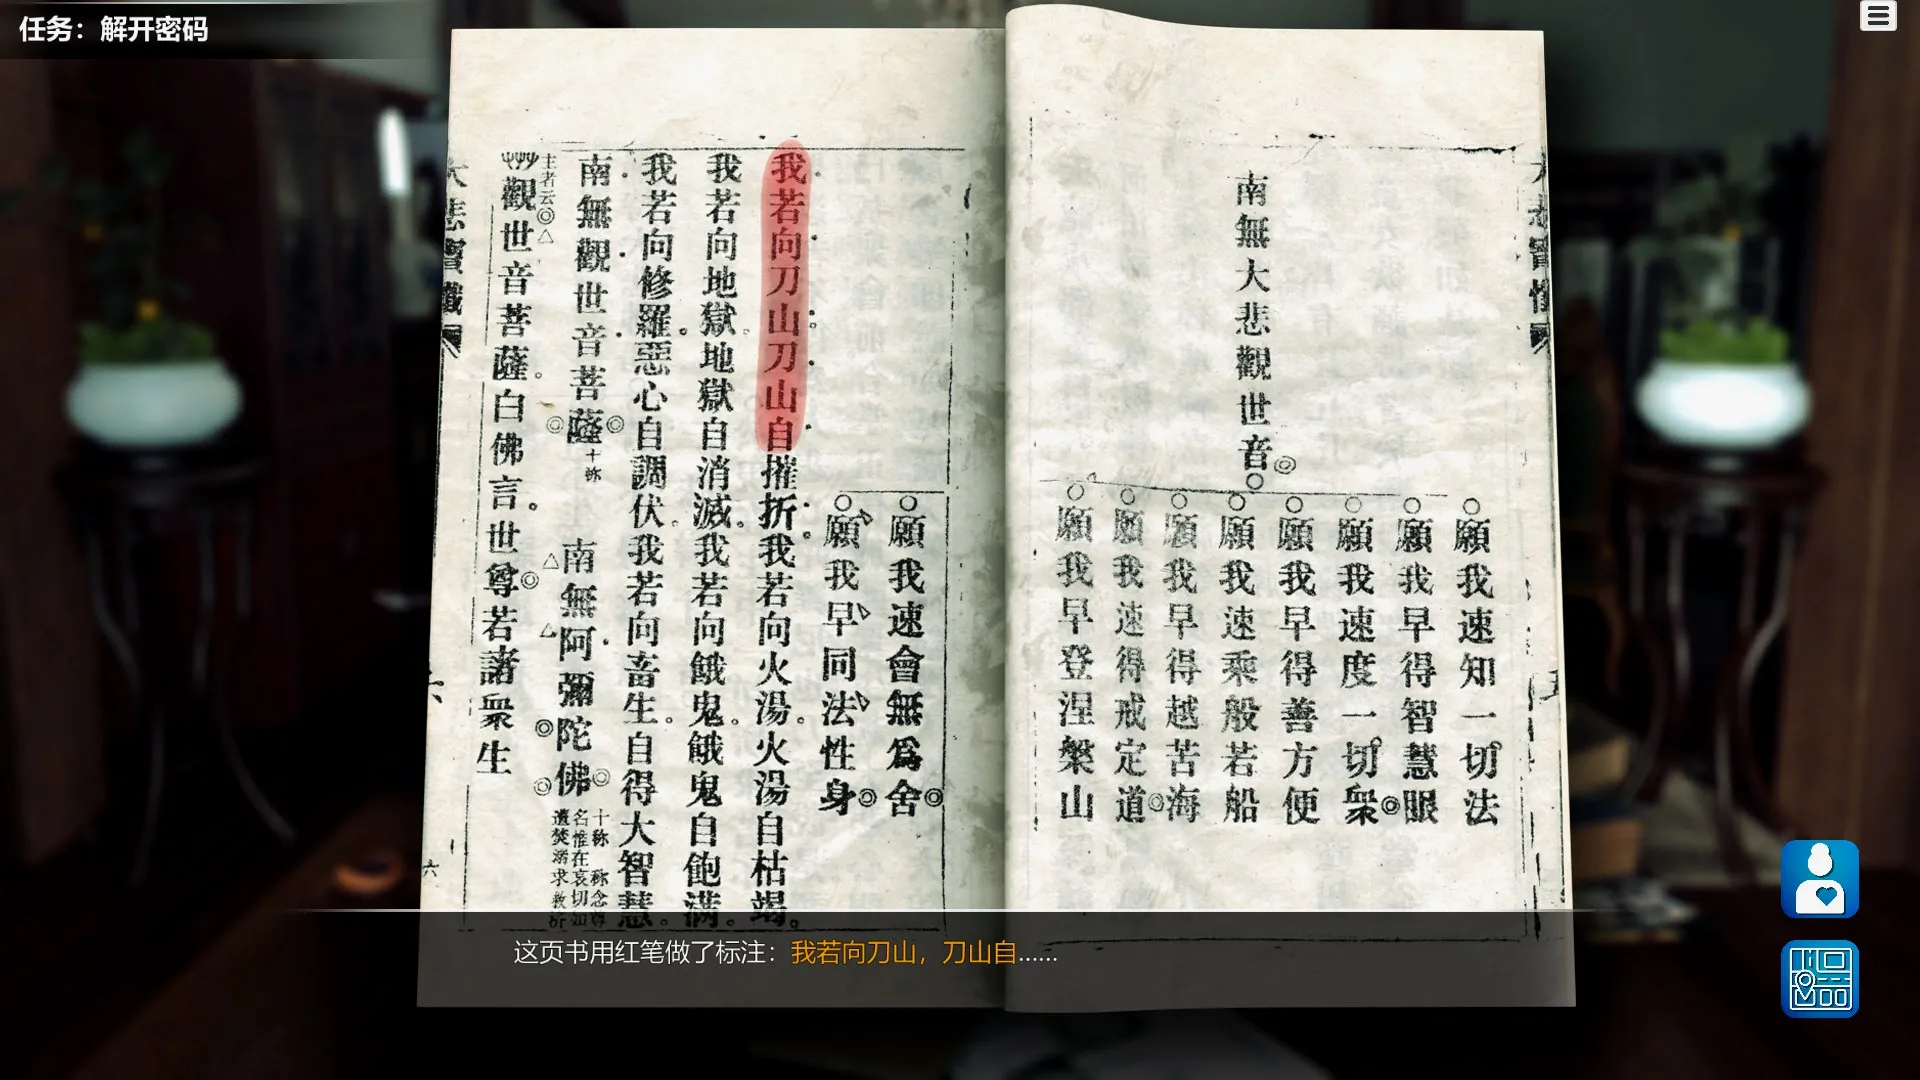 任务：解开密码
南無大悲觀世音
願我速知一切法
願我早得智慧眼
願我速度一切衆
願我早得善方便
願我速乘般若船
願我早得越苦海
願我速得戒定道
願我早登涅槃山
願我速會無爲舍
願我早同法性身
我若向刀山刀山自摧折我若向火湯火湯自枯竭
我若向地獄地獄自消滅我若向餓鬼餓鬼自飽滿
我若向修羅惡心自調伏我若向畜生自得大智慧
南無觀世音菩薩十称
南無阿彌陀佛
主者云
觀世音菩薩白佛言世尊若諸衆生
六
这页书用红笔做了标注：我若向刀山，刀山自......